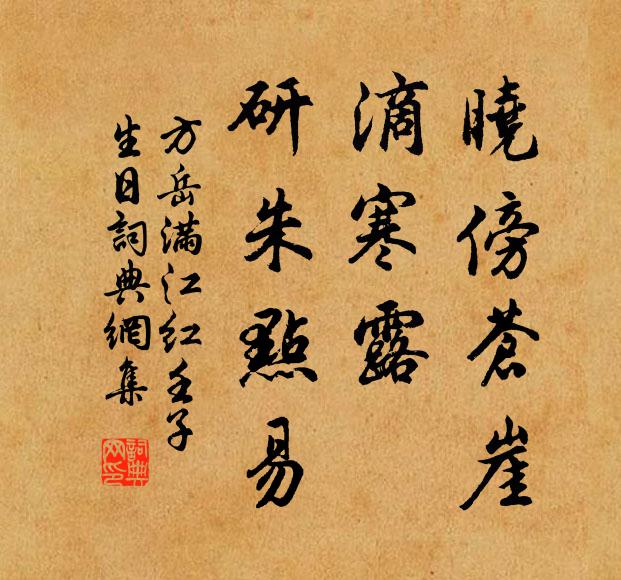 曉傍蒼崖
滴寒露
研朱點易
方岳滿江紅壬子
生日詞典網集
詞典
网印